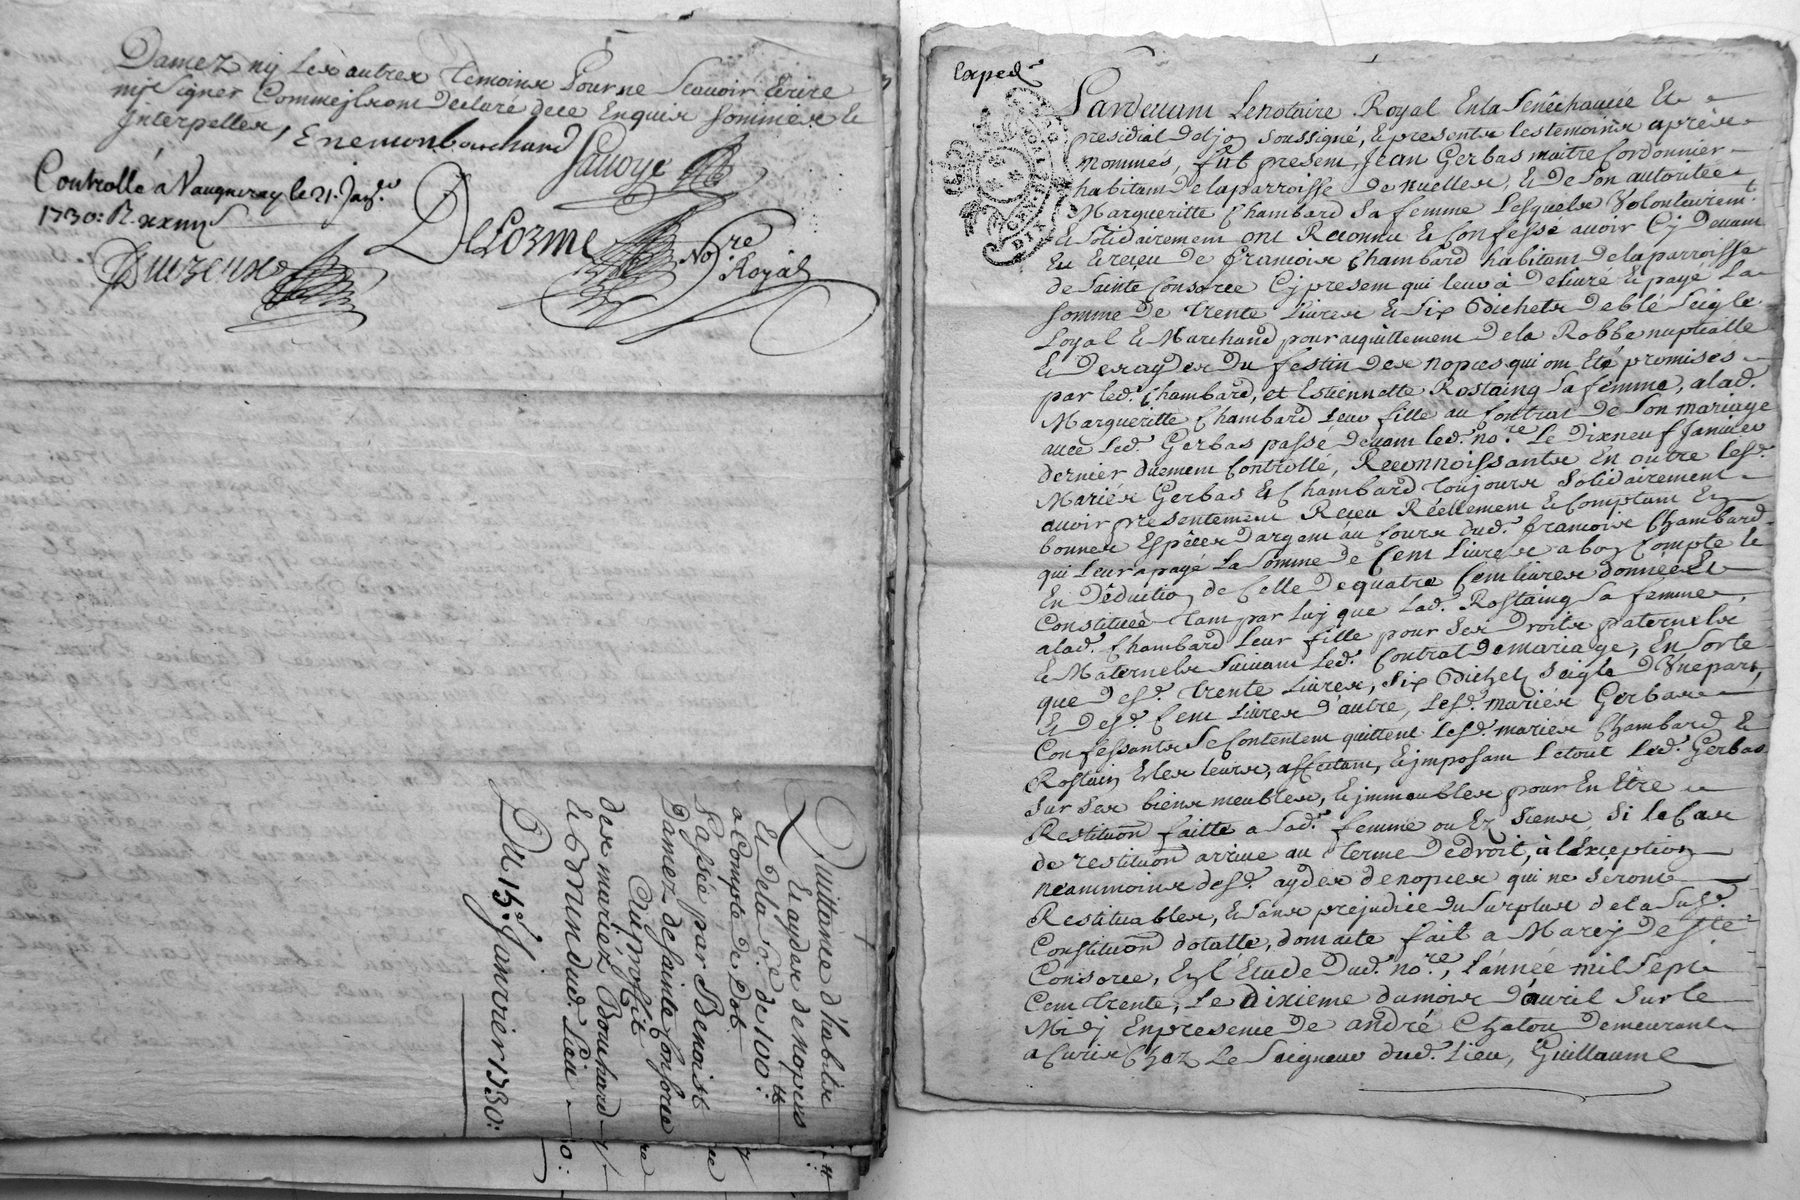 Damez ny les autres temoins pour ne scavoir ecrire
ny signer comme ils ont declaré de ce enquis sommés et
Interpelles,
Enemon bouchand
Savoye
Controllé a Vaugneray le 21. Janv.
1730:
Delorme
No.re
Royal
Quittance d'habits
Et aydes de nopces
Et de la s.e de 100.tt
a Compte de Dot
Passée par Benoist
Damez de sainte Consorce
Au proffit
des mariez Bouchard
et Damez dud. Lieu
Du 15.e Janvier 1730:
Exped.
Pardevant Le notaire Royal En la Sénéchaucée Et
presidial de Lyon soussigné, et presents les temoins après
nommés, fût present Jean Gerbas maitre Cordonnier
habitant de la parroisse de nuelles, et de son autoritée
Margueritte Chambard sa femme Lesquels Volontairemt.
et solidairement ont Reconnu et Confessé avoir Cy devant
Eu et reçeu de francois Chambard habitant de la parroisse
de Sainte Consorce Cy present qui leur à delivré et payé La
somme de trente Livres et six Bichets de blé seigle
Loyal et Marchand pour acquittement de la Robbe nuptialle
et des aydes du festin des nopces qui ont Eté promises
par led. Chambard, et Estiennette Rostaing sa femme, a lad.
Margueritte Chambard leur fille au Contrat de son mariage
avec led. Gerbas passé devant led. no.re Le dixneuf Janvier
dernier duement Controllé, Reconnoissants En outre lesd.
Mariés Gerbas et Chambard toujours solidairement
avoir presentement Receu Réellement et Comptant En
bonnes Espéces d'argent au Cours dud. francois Chambard
qui leur a payé La somme de Cent Livres a bon Compte et
En Déduction de Celle de quatre Cent livres donnée Et
Constituée tant par luy que Lad. Rostaing sa femme,
a lad. Chambard leur fille pour ses Droits paternels
et Maternels suivant led. Contrat de mariage, En sorte
que desd. trente Livres, six Bichets seigle d'Une part,
et desd. Cent Livres d'autre, Lesd. mariés Gerbas
Confessants se Contentent quittent Lesd. mariés Chambard et
Rostain Et les leurs, affectant, et imposant Le tout Led. Gerbas
sur ses biens meubles, et immeubles pour En Etre
Restituon faitte a sad. femme ou Ez siens, si le Cas
de restituon arrive au terme de droit, à l'Exception
neammoins desd. aydes de nopces qui ne seront
Restituables, et sans prejudice du surplus de la susd.
Constituon dotalle, dont acte fait a Marcy de Ste
Consorce, En l'Etude dud. no.re, l'année mil sept
Cent trente, Le dixieme du mois d'avril sur le
Midi En presence de andré Chatou demeurant
a Curis Chez Le seigneur dud. Lieu, Guillaume